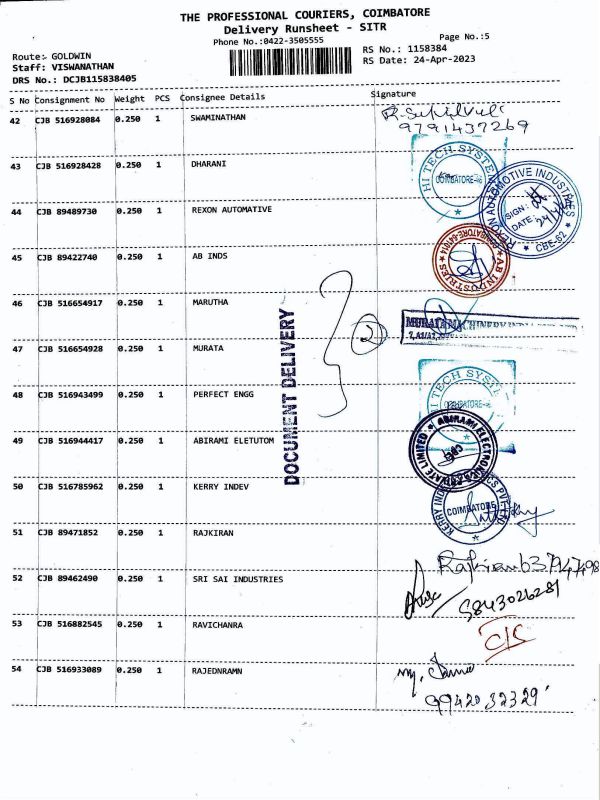 THE PROFESSIONAL COURIERS, COIMBATORE
Delivery Runsheet - SITR
Phone No.:0422-3505555
Page No.:5
Route:- GOLDWIN
RS No.: 1158384
Staff: VISWANATHAN
RS Date: 24-Apr-2023
DRS No.: DCJB115838405
S No Consignment No Weight PCS Consignee Details Signature
42 CJB 516928084 0.250 1 SWAMINATHAN
9791437269
43 CJB 516928428 0.250 1 DHARANI
HI TECH SYSTEM
COIMBATORE
44 CJB 89489730 0.250 1 REXON AUTOMATIVE
REXON AUTOMOTIVE INDUSTRIES
SIGN:
DATE:
CBE-62
45 CJB 89422740 0.250 1 AB INDS
AB INDUSTRIES
46 CJB 516654917 0.250 1 MARUTHA
2
MURATA MACHINERY
47 CJB 516654928 0.250 1 MURATA
DOCUMENT DELIVERY
48 CJB 516943499 0.250 1 PERFECT ENGG
HI TECH SYSTEM
COIMBATORE
49 CJB 516944417 0.250 1 ABIRAMI ELETUTOM
ABIRAMI ELECTRONICS PRIVATE LIMITED
50 CJB 516785962 0.250 1 KERRY INDEV
KERRY INDEV
COIMBATORE
51 CJB 89471852 0.250 1 RAJKIRAN
52 CJB 89462490 0.250 1 SRI SAI INDUSTRIES
53 CJB 516882545 0.250 1 RAVICHANRA
C/S
54 CJB 516933089 0.250 1 RAJEDNRAMN
9942032329